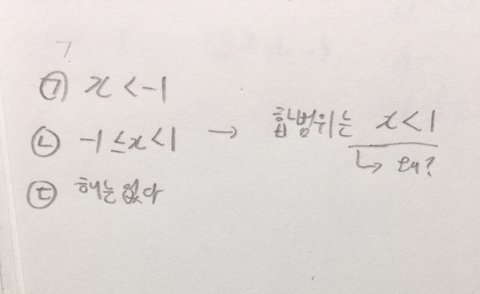 ㉠ x < -1
㉡ -1 ≤ x < 1 → 합범위는 x < 1
↳ 왜?
㉢ 해는 없다